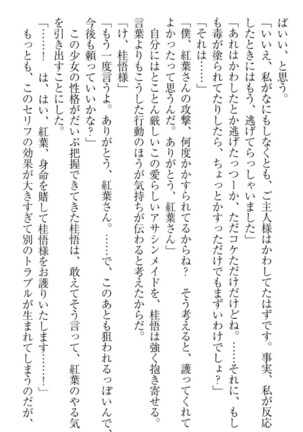 ばいい、と思う。
「いいえ、私がなにもしなくとも、ご主人様はかわしてたはずです。事実、私が反応
したときにはもう、逃げてらっしゃいました」
「あれはかわしたとか逃げたっつーか、ただコケただけだけどね。……それに、もし
も毒が塗られてたりしたら、ちょっとかすっただけでもまずいわけでしょ？」
「それは……」
「僕、紅葉さんの攻撃、何度かかすられてるからね？　そう考えると、護ってくれて
よかったって思うんだ。ありがとう、紅葉さん」
自分にはとことん厳しいこの愛らしいアサシンメイドを、桂悟は強く抱き寄せる。
言葉よりもこうした行動のほうが気持ちが伝わると考えたからだ。
「け、桂悟様」
「もう一度言うよ。ありがとう、紅葉さん。……で、このあとも狙われるっぽいんで、
今後も頼っていいかな？」
この少女の性格がだいぶ把握できてきた桂悟は、敢えてそう言って、紅葉のやる気
を引き出すことにした。
「……！　は、はい、紅葉、身命を賭して桂悟様をお護りいたします……！」
もっとも、このセリフの効果が大きすぎて別のトラブルが生まれてしまうのだが、